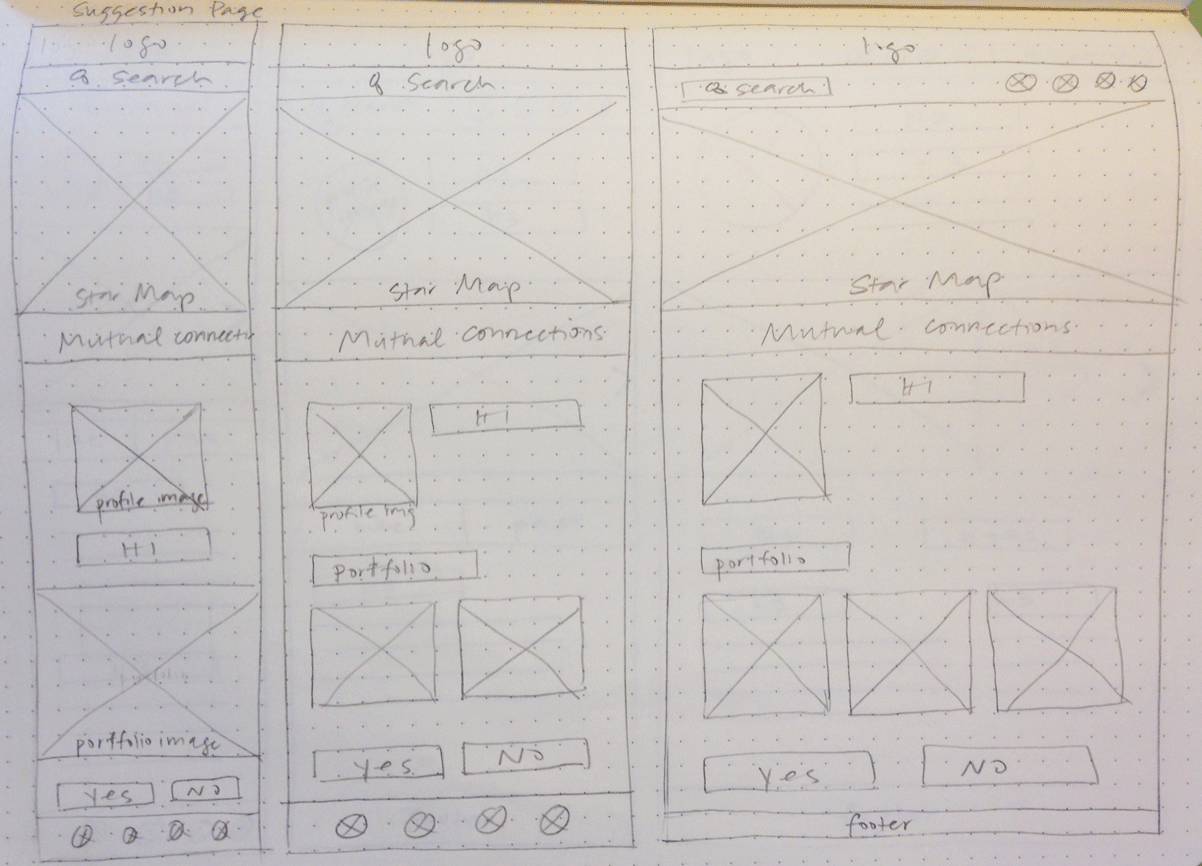 Suggestion Page
logo
Search
Star Map
Mutual connecti
profile image
HI
portfolio image
Yes
NO
logo
Search
Star Map
Mutual connections
HI
profile img
portfolio
yes
NO
logo
Search
Star Map
Mutual connections
HI
portfolio
Yes
NO
footer